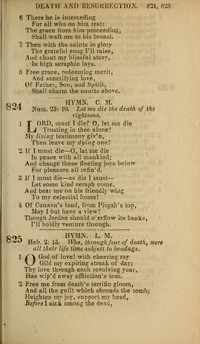 DEATH AND RESURRECTION. 824, 825
6 There he is interceding
For all who on him rest:
The grace from him proceeding,
Shall waft me to his breast.
7 Then with the saints in glory
The grateful song I'll raise,
And chant my blissful story,
In high seraphic lays.
8 Free grace, redeeming merit,
And sanctifying love,
Of Father, Son, and Spirit,
Shall charm the courts above.
824 HYMN. C. M.
Num. 23: 10. Let me die the death of the
righteous.
1 LORD, must I die? O, let me die
Trusting in thee alone!
My living testimony giv'n,
Then leave my dying one!
2 If I must die—O, let me die
In peace with all mankind;
And change these fleeting joys below
For pleasures all refin'd.
3 If I must die—as die I must—
Let some kind seraph come,
And bear me on his friendly wing
To my celestial home!
4 Of Canaan's land, from Pisgah's top,
May I but have a view!
Though Jordan should o'erflow its banks,
I'll boldly venture through.
825 HYMN. L. M.
Heb. 2: 15. Who, through fear of death, were
all their life time subject to bondage.
1 O God of love! with cheering ray
Gild my expiring streak of day;
Thy love through each revolving year,
Has wip'd away affliction's tear.
2 Free me from death's terrific gloom,
And all the guilt which shrouds the tomb;
Heighten my joy, support my head,
Before I sink among the dead.